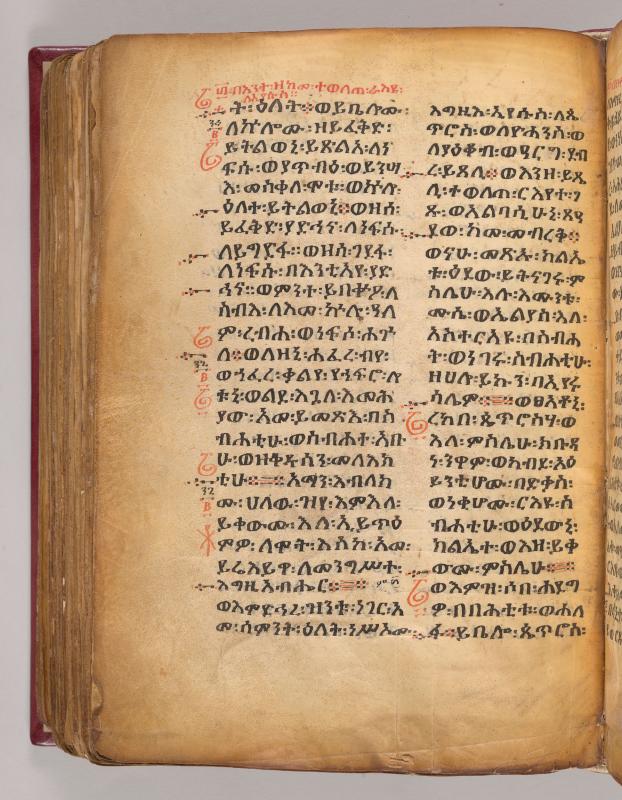 ፴፡በእንተ፡ዘከመ፡ተወለጠ፡ራእዩ፡
ለኢየሱስ፡፡
ት፡ዕለት፡ወይቤሎሙ፡
ለኵሎሙ፡ዘይፈቅድ፡
ይትልወኒ፡ይጽልእ፡ለነ
ፍሱ፡ወያጥብዕ፡ወይንሣ
እ፡መስቀለ፡ሞቱ፡ወኵሎ፡
ዕለተ፡ይትልወኒ፡ወዘሰ፡
ይፈቅድ፡ያድኅና፡ለነፍሱ፡
ለይግድፋ፡፡ወዘሰ፡ገደፋ፡
ለነፍሱ፡በእንቲአየ፡ያድ
ኅና፡፡ወምንተ፡ይበቍዖ፡ለ
ስብእ፡ለእመ፡ኵሎ፡ዓለ
ም፡ረብሐ፡ወነፍሶ፡ሐጕ
ለ፡ወለዘኒ፡ሐፈረ፡ብየ፡
ወኀፈረ፡ቃልየ፡የኀፍሮ፡ሎ
ቱ፡ኒ፡ወልደ፡እጓለ፡እመሕ
ያው፡አመ፡ይመጽእ፡በስ
ብሐቲሁ፡ወስብሐተ፡አቡ
ሁ፡ወዝቅዱሳን፡መላእክ
ቲሁ፡አማን፡እብለክ
ሙ፡ሀለዉ፡ዝየ፡እምእለ፡
ይቀውሙ፡እለ፡ኢይጥዕ
ምዎ፡ለሞት፡እስከ፡አመ፡
ይሬእይዋ፡ለመንግሥተ፡
እግዚአብሔር፡
ወእምድኅረ፡ዝንቱ፡ነገር፡አ
መ፡ሰምንት፡ዕለት፡ነሥኦሙ፡
እግዚእ፡ኢየሱስ፡ለጴ
ጥሮስ፡ወለዮሐንስ፡ወ
ለያዕቆብ፡ወዓርገ፡ደብ
ረ፡ይጸሊ፡ወእንዘ፡ይጼ
ሊ፡ተወለጠ፡ርእየተ፡ገ
ጹ፡ወአልባሲሁኒ፡ጸዓ
ደወ፡ከመ፡መብረቅ፡
ወናሁ፡መጽኡ፡ክልኤ
ቱ፡ዕደው፡ይትናገሩ፡ም
ስሌሁ፡እሉ፡እሙንቱ፡
ሙሴ፡ወኤልያስ፡እለ፡
አስተርአዩ፡በስብሐ
ት፡ወነገሩ፡ስብሐቲሁ፡
ዘሀሎ፡ይኩን፡በኢየሩ
ሳሌም፡ወፀአቶኒ፡
ረከበ፡ጴጥሮስሃ፡ወ
እለ፡ምስሌሁ፡ክቡዳ
ነ፡ንዋም፡ወካብደ፡አዕ
ይንቲሆሙ፡በድቃስ፡
ወነቂሆሙ፡ርእዩ፡ስ
ብሐቲሁ፡ወዕደውኒ፡
ክልኤተ፡ወእዘ፡ይቀ
ውሙ፡ምስሌሁ፡
ወእምዝ፡ሶበ፡ሐደግ
ዎ፡በበሕቲቱ፡ወሐለ
ፋ፡ይቤሎ፡ጴጥሮስ፡